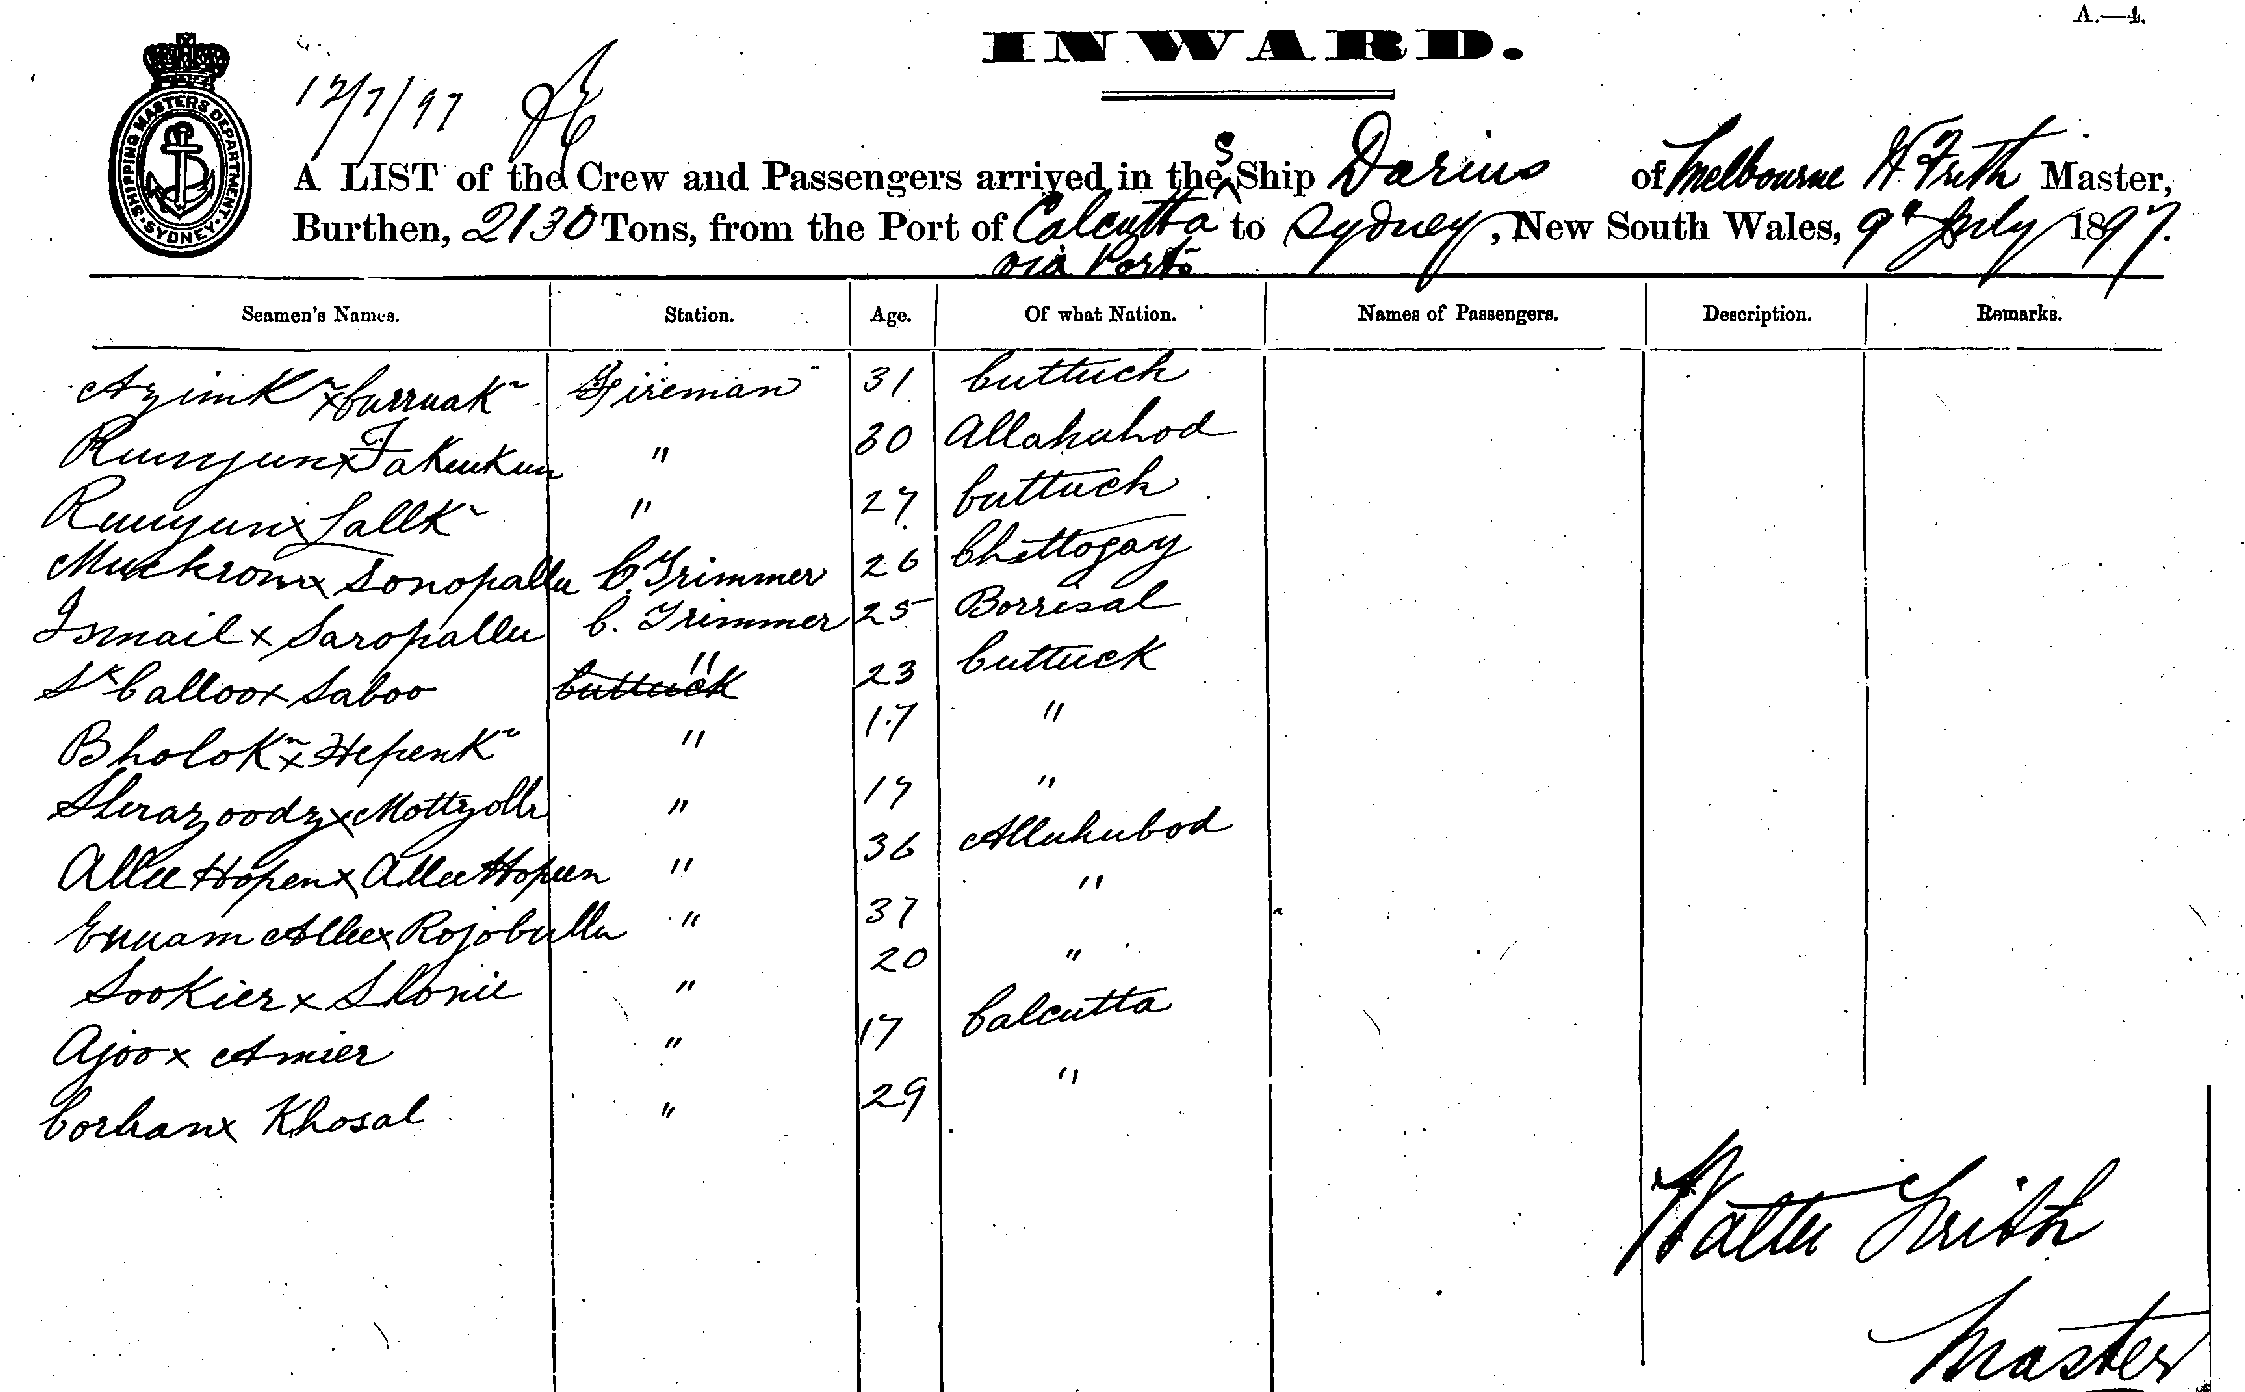 A.—4.
INWARD.
SHIPPING MASTERS DEPARTMENT
SYDNEY
12/7/97
A LIST of the Crew and Passengers arrived in the S Ship Darius of Melbourne W Frith Master,
Burthen, 2130 Tons, from the Port of Calcutta to Sydney, New South Wales, 9th July 1897.
via Ports
Seamen's Names. Station. Age. Of what Nation. Names of Passengers. Description. Remarks.
Azim K x Curruak Fireman 31 Cuttuck
Rumjun x Fakukun " 30 Allahuhod
Rumjun x Lall K " 27 Cuttuck
Muckrom x Sonopalla C. Trimmer 26 Chittogay
Ismail x Saropallu C. Trimmer 25 Borrisal
Sk Calloo x Saboo Cuttuck " 23 Cuttuck
Bholo K x Hepen K " 17 "
Sherazoody x Mottyolla " 17 "
Allee Hopen x Allee Hopeen " 36 Alluhubod
Ennam Allee x Rojobulla " 37 "
Sookier x Shonie " 20 "
Ajoo x Amier " 17 Calcutta
Corban x Khosal " 29 "
Walter Frith
Master